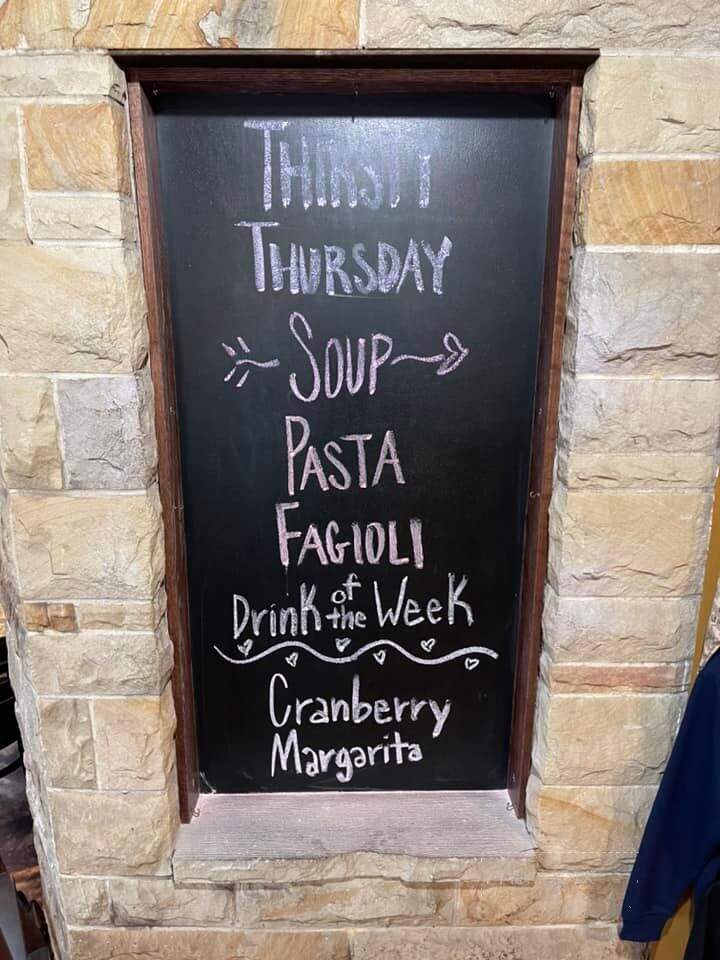 THIRSTY
THURSDAY
SOUP
PASTA
FAGIOLI
Drink of the Week
Cranberry
Margarita